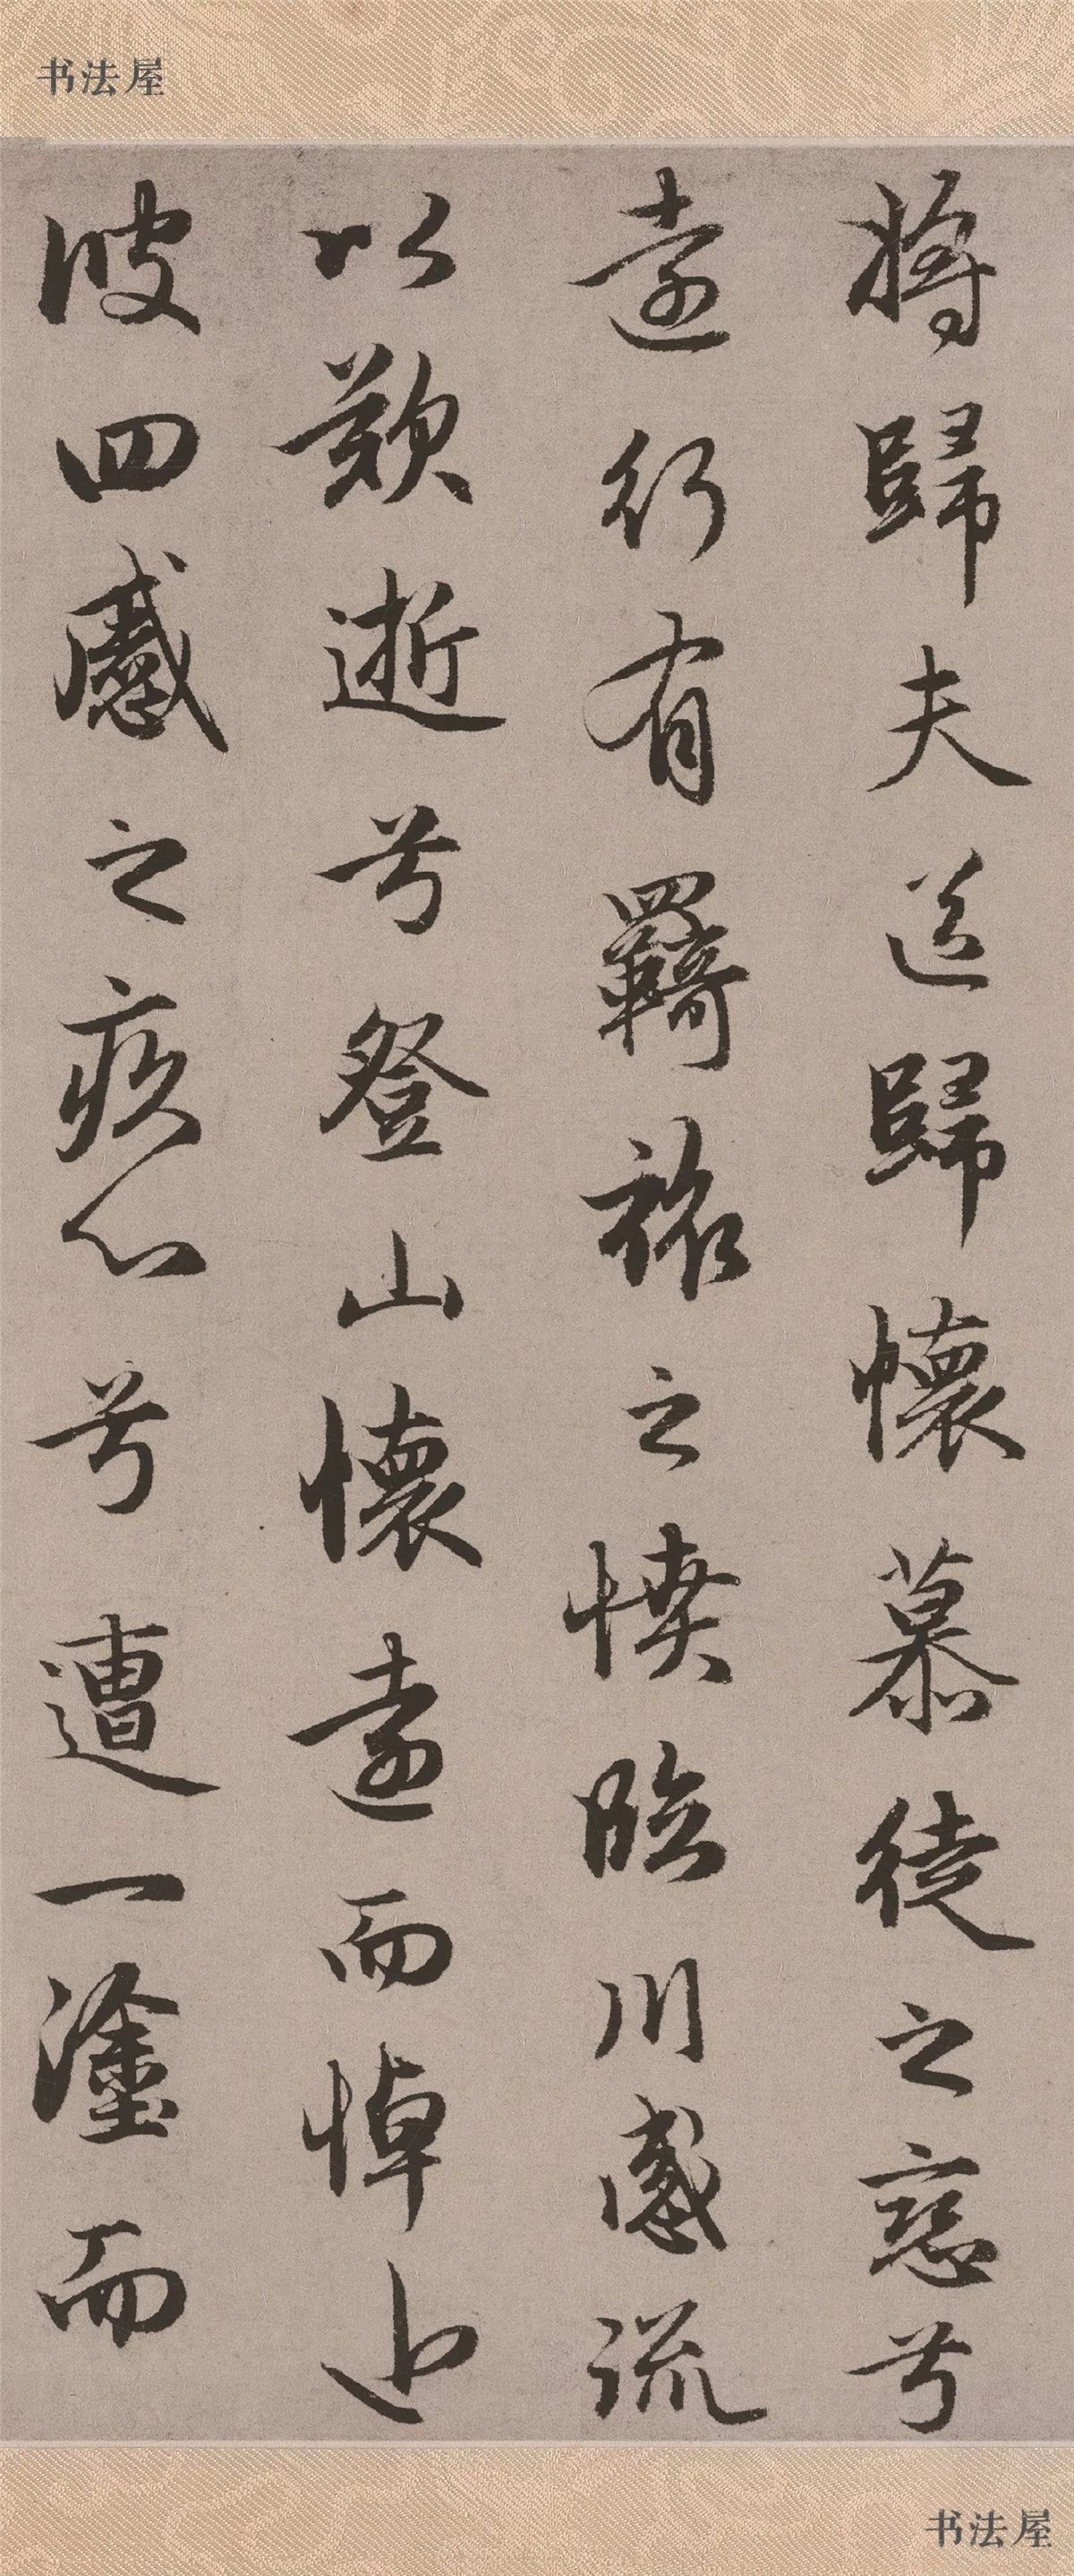 书法屋
將歸夫送歸懷慕徒之戀兮
遠行有羇旅之憤臨川感流
以歎逝兮登山懷遠而悼近
彼四慼之疚心兮遭一塗而
书法屋